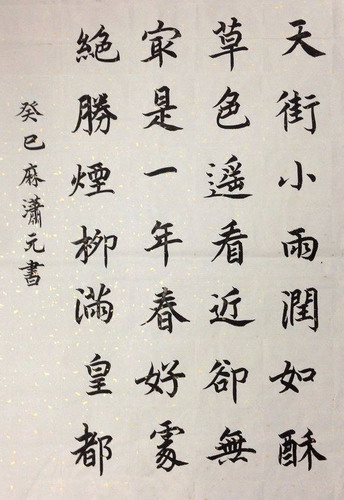 天街小雨潤如酥
草色遥看近卻無
㝡是一年春好處
絕勝煙柳滿皇都
癸巳麻瀟元書